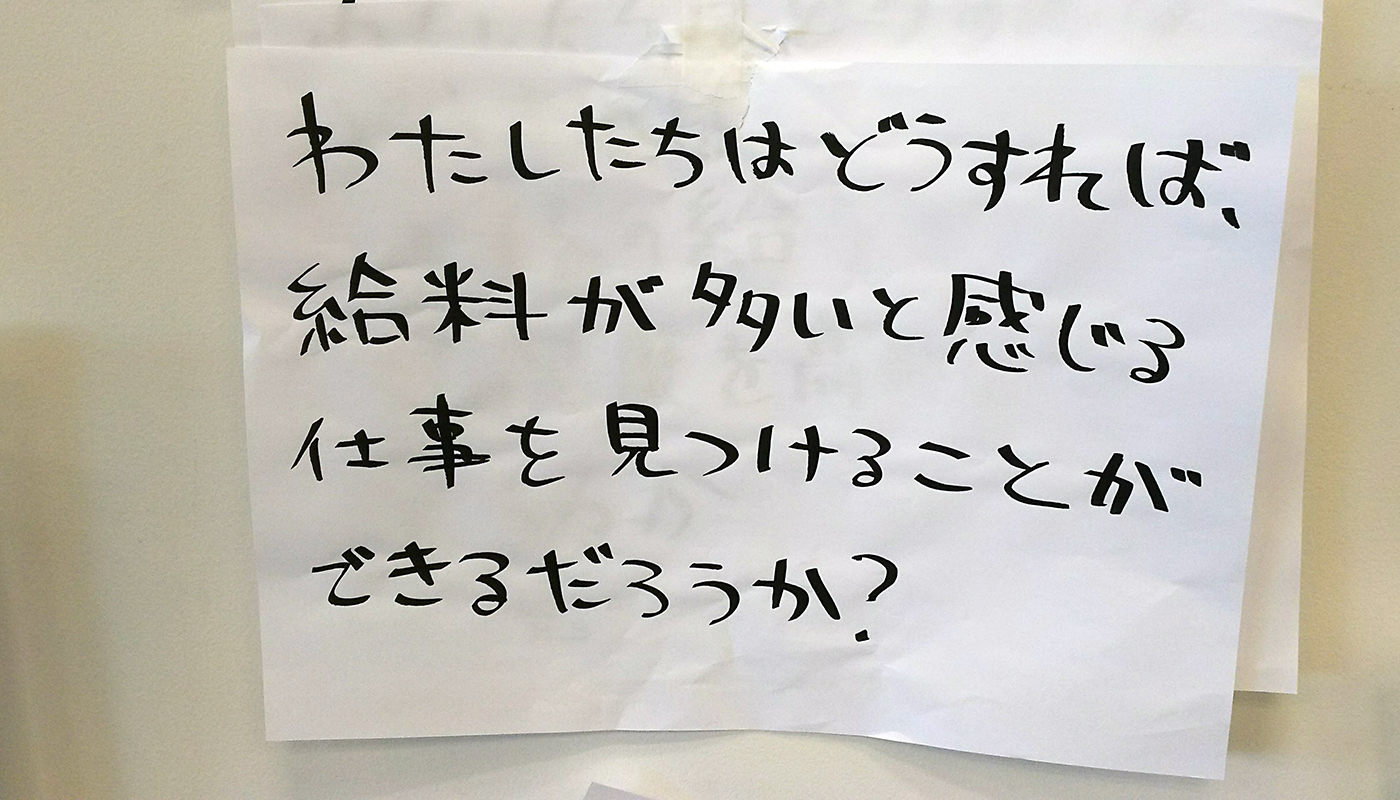 わたしたちはどうすれば、
給料が多いと感じる
仕事を見つけることが
できるだろうか?